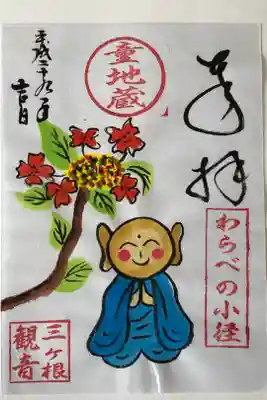 奉拝
童地蔵
平成二十九年
吉日
わらべの小径
三ヶ根
観音